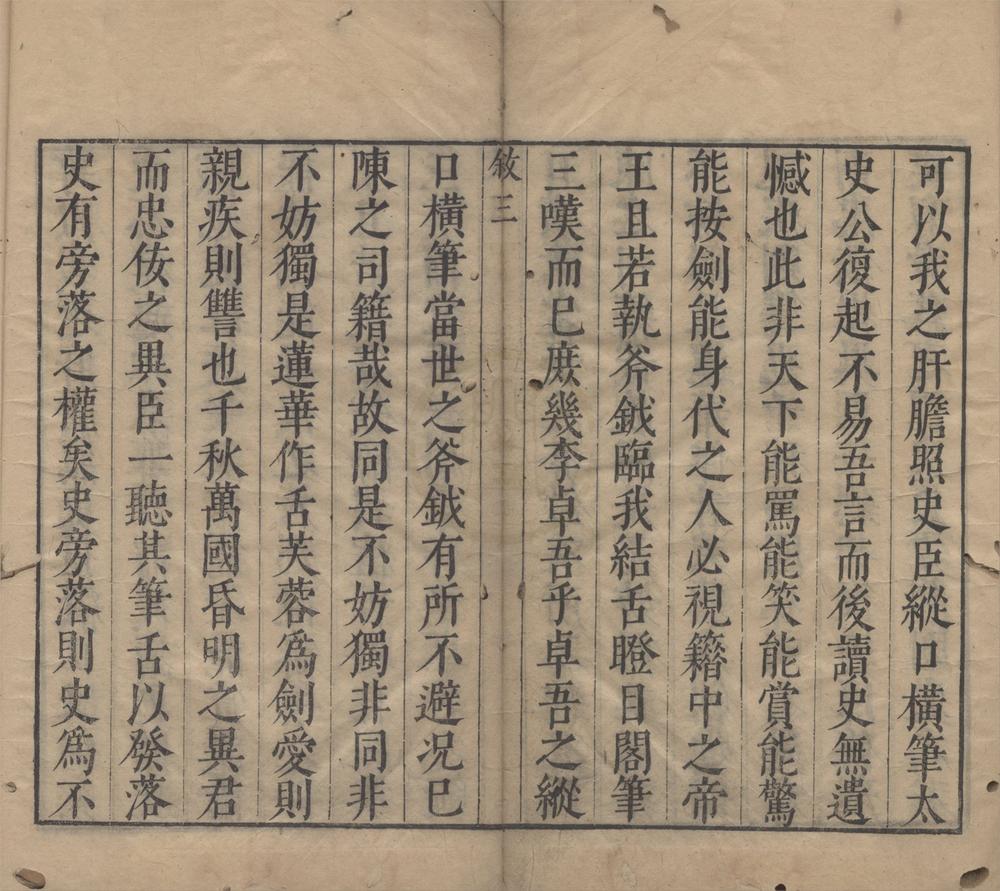 可以我之肝膽照史臣縱口橫筆太
史公復起不易吾言而後讀史無遺
憾也此非天下能罵能笑能賞能驚
能按劍能身代之人必視籍中之帝
王且若執斧鉞臨我結舌瞪目閣筆
三嘆而已庶幾李卓吾乎卓吾之縱
敘三
口橫筆當世之斧鉞有所不避况已
陳之司籍哉故同是不妨獨非同非
不妨獨是蓮華作舌芙蓉爲劍愛則
親疾則讐也千秋萬國昏明之異君
而忠佞之異臣一聽其筆舌以發落
史有旁落之權矣史旁落則史爲不